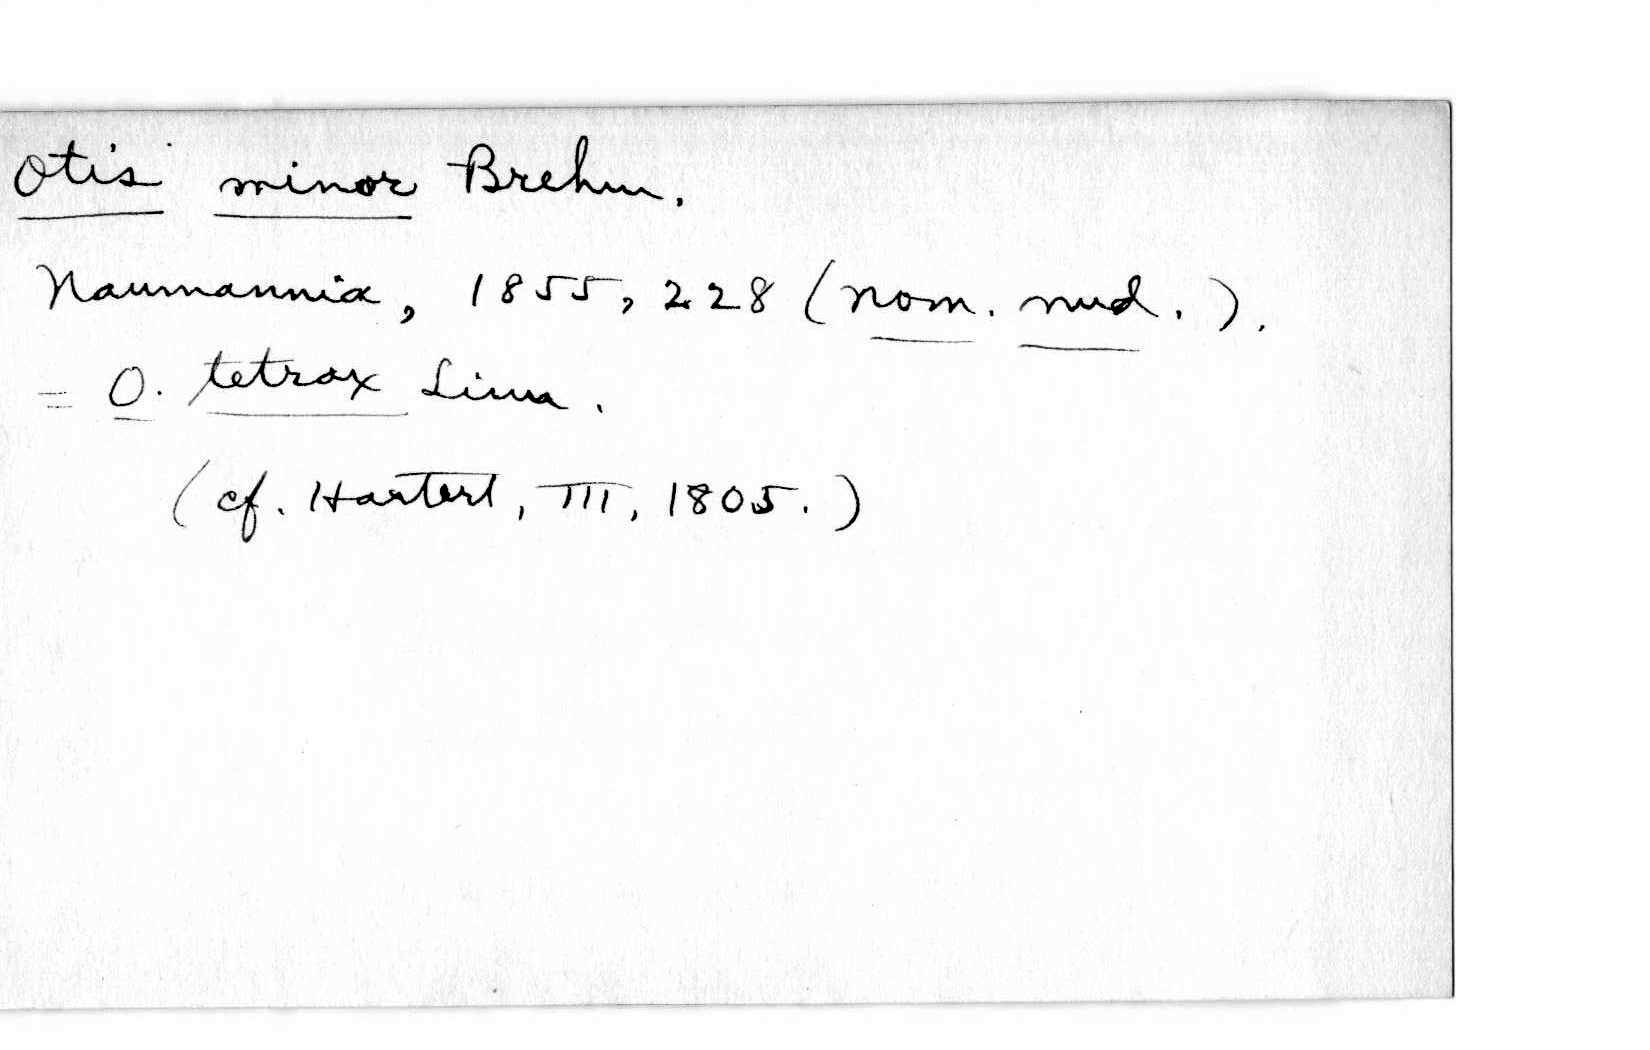 Otis minor Brehm.
Naumannia, 1855, 228 (nom. nud.).
= O. tetrax Linn.
(cf. Hartert, III, 1805.)